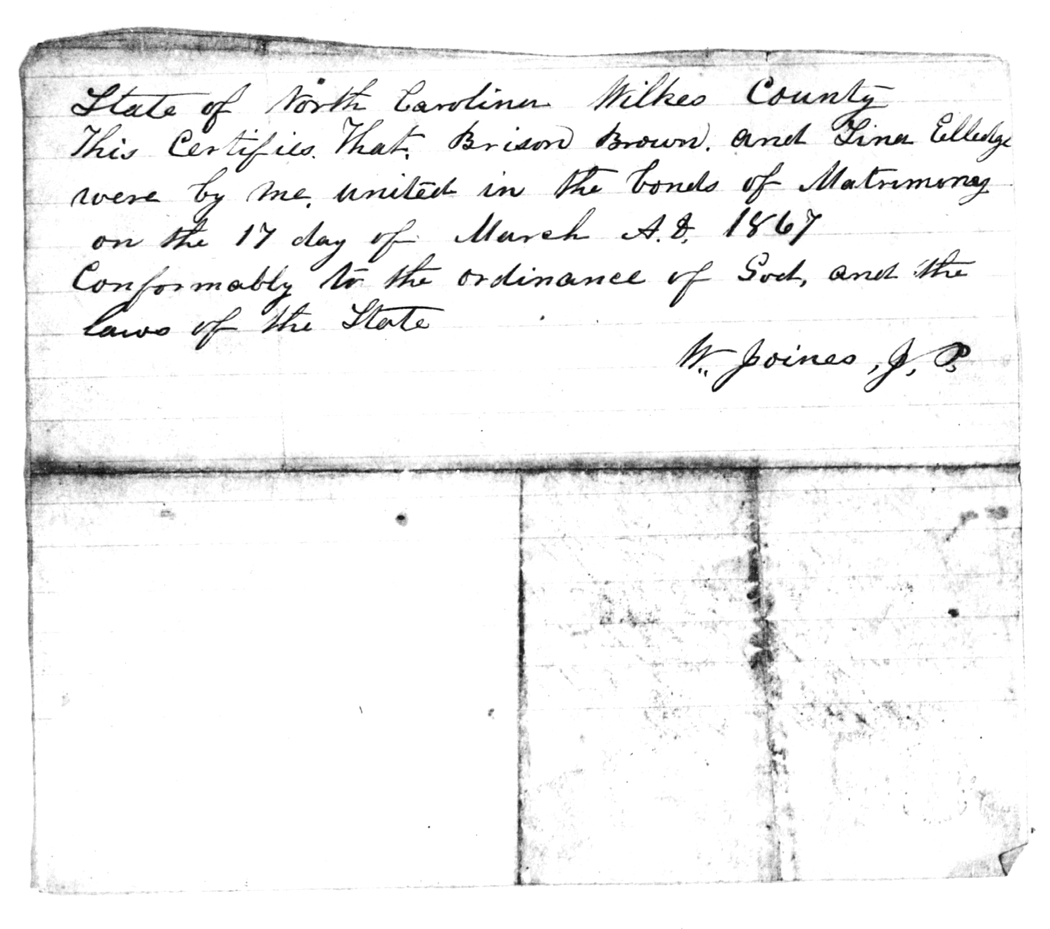 State of North Carolina Wilkes County
This Certifies. That. Brison Brown. and Tina Elledge
were by me. united in the bonds of Matrimony
on the 17 day of March A.D. 1867
Conformably to the ordinance of God, and the
laws of the State
Wm Joines, J. P.